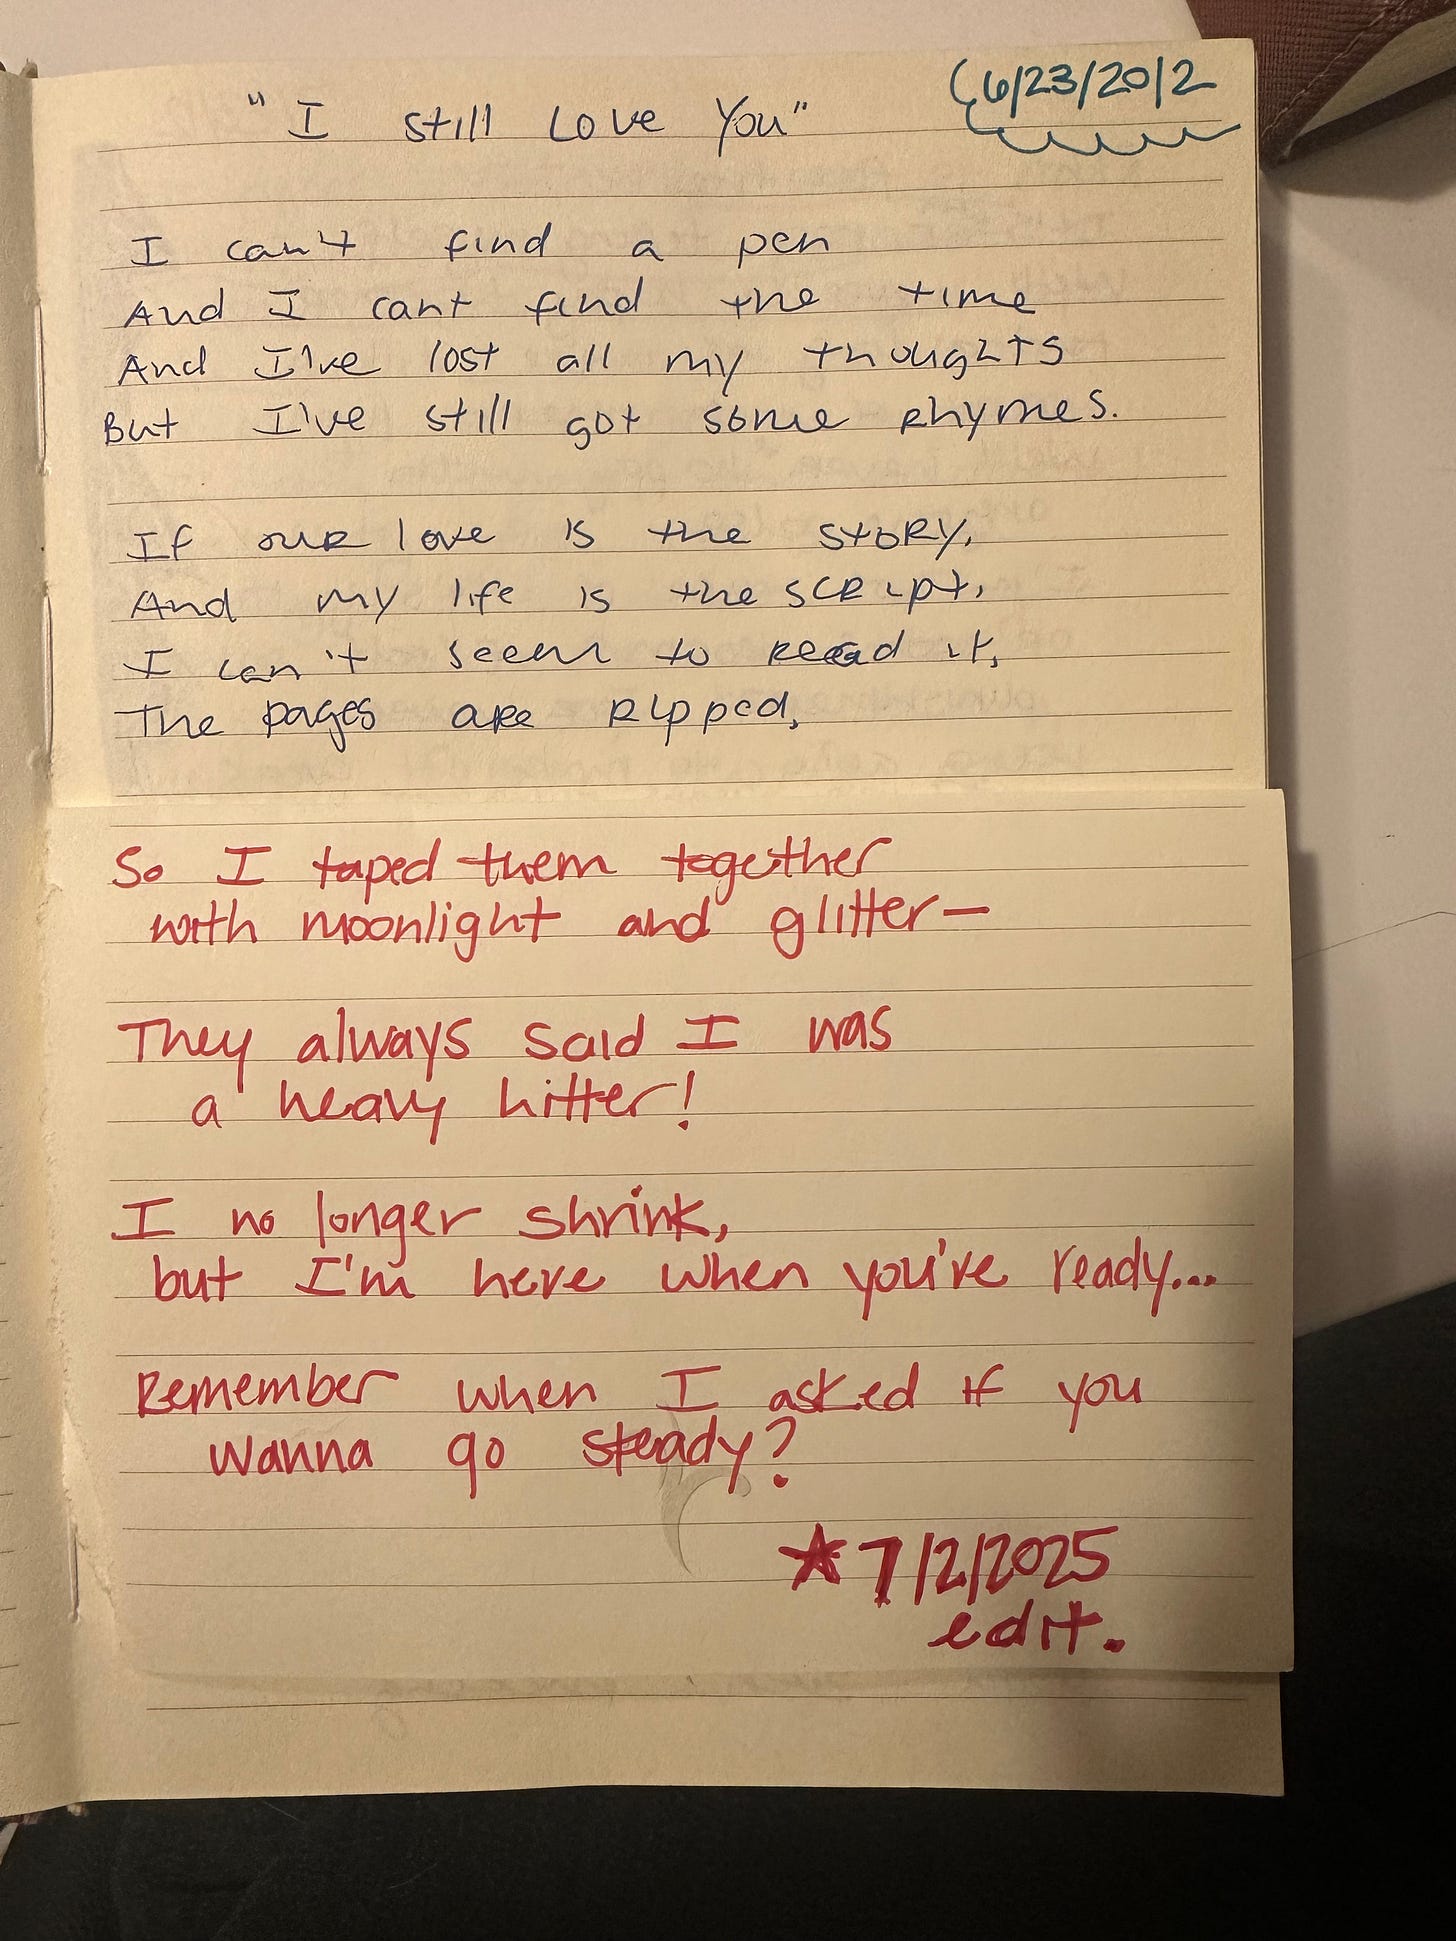 "I still Love You"
6/23/2012
I can't find a pen
And I cant find the time
And I've lost all my thoughts
But I've still got some Rhymes.
If our love is the story,
And my life is the script,
I can't seem to read it,
The pages are ripped,
So I taped them together
with moonlight and glitter—
They always said I was
a heavy hitter!
I no longer shrink,
but I'm here when you're ready...
Remember when I asked if you
wanna go steady?
★7/2/2025
edit.